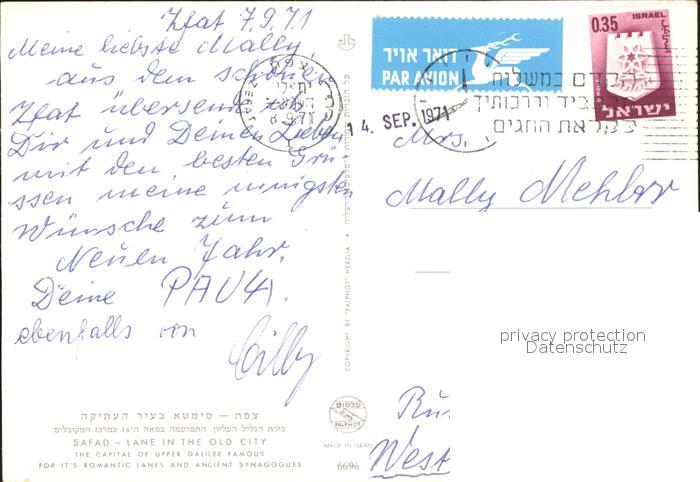 Zfat 7.9.71
Meine liebste Mally,
aus dem schönen
Zfat übersende ich
Dir und Deinen Lieben
mit den besten Grü-
ssen meine innigsten
Wünsche zum
Neuen Jahr.
Deine PAULA.
ebenfalls von
Cilly
צפת — סימטא בעיר העתיקה
בירת הגליל העליון, התפרסמה במאה ה-16 כמרכז המקובלים
SAFAD – LANE IN THE OLD CITY
THE CAPITAL OF UPPER GALILEE FAMOUS
FOR IT'S ROMANTIC LANES AND ANCIENT SYNAGOGUES
COPYRIGHT BY "PALPHOT" HERZLIA
PALPHOT
MADE IN ISRAEL
6696
דואר אויר
PAR AVION
0.35 ISRAEL
ישראל
8.9.71
14. SEP. 1971
הקדם במשלוח
וברכותיך
לקראת החגים
Mrs.
Mally Mehler
privacy protection
Datenschutz
West